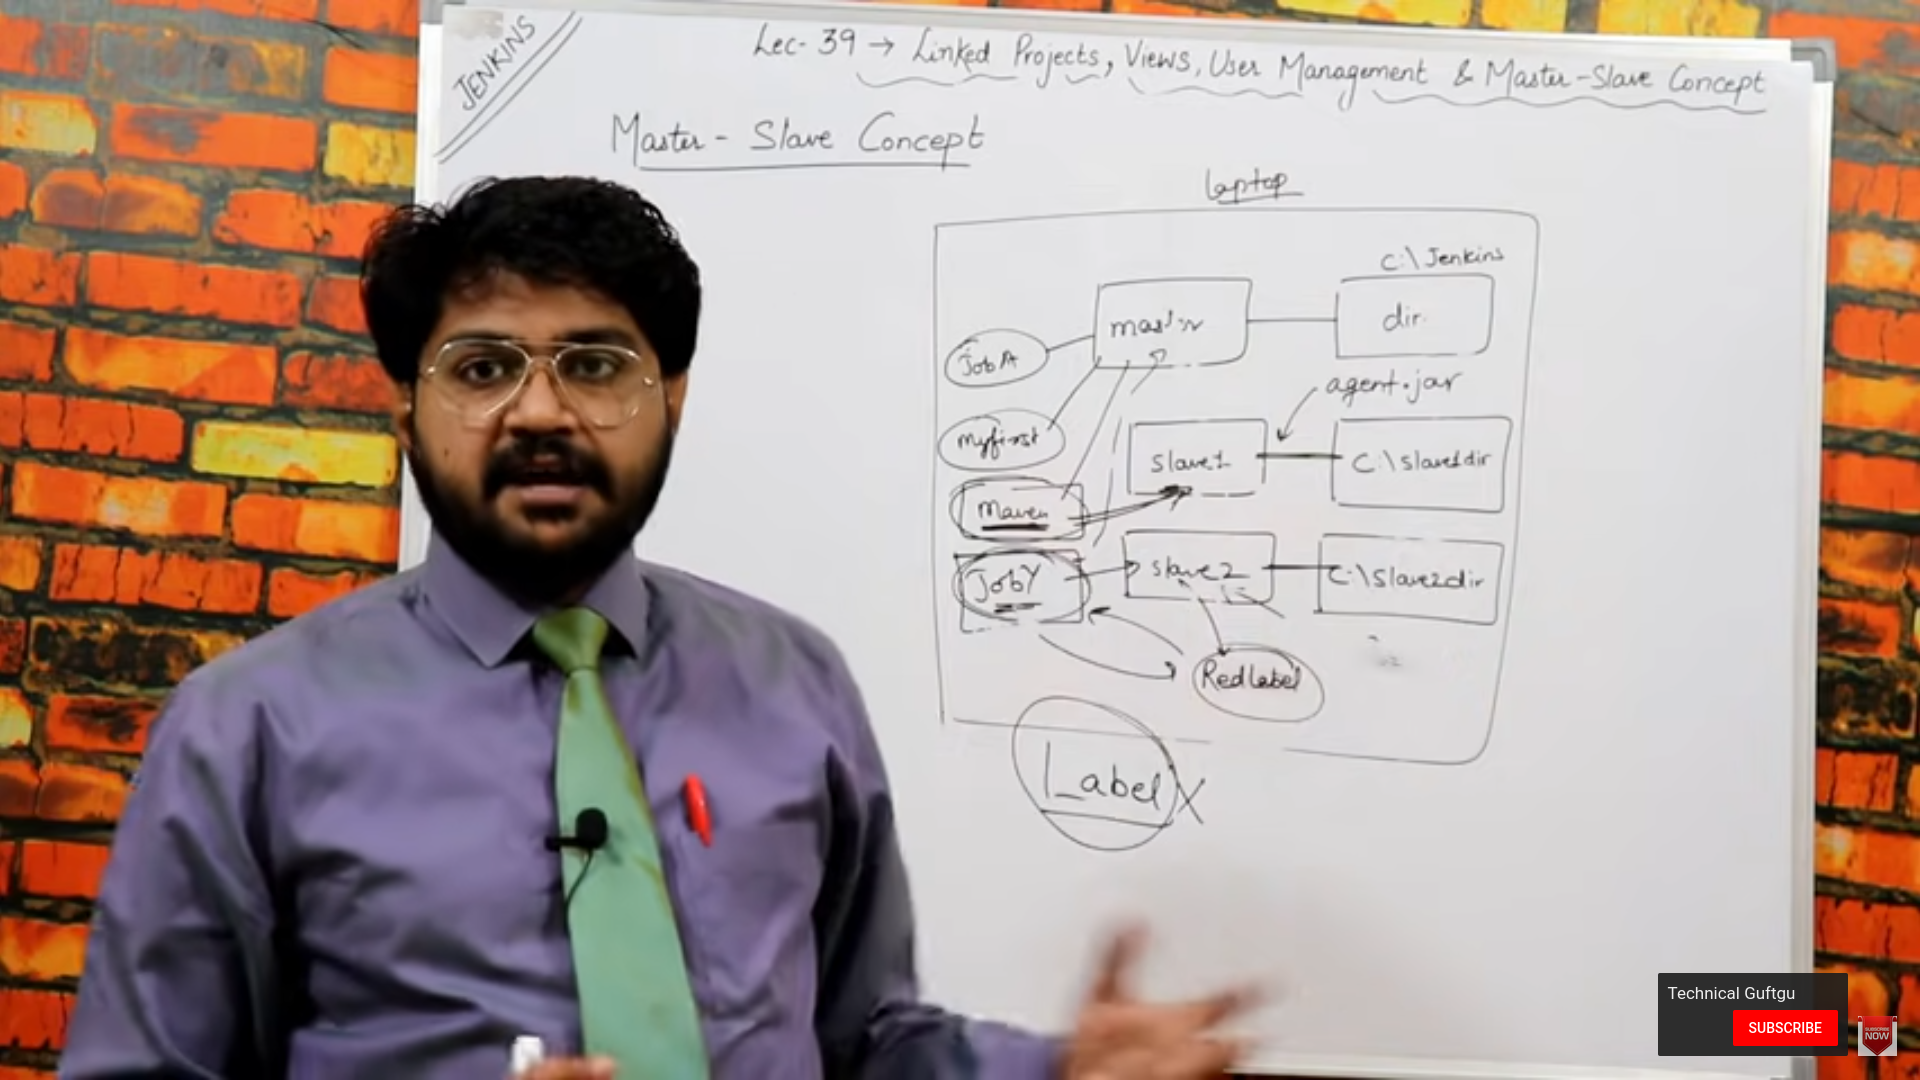 JENKINS
Lec-39 → Linked Projects, Views, User Management & Master-Slave Concept
Master - Slave Concept
laptop
C:\Jenkins
master
dir.
Job A
agent.jar
Myfirst
Slave1
C:\slave1dir
Maven
Job Y
slave2
C:\slave2dir
Redlabel
Label
Technical Guftgu
SUBSCRIBE
SUBSCRIBE
NOW